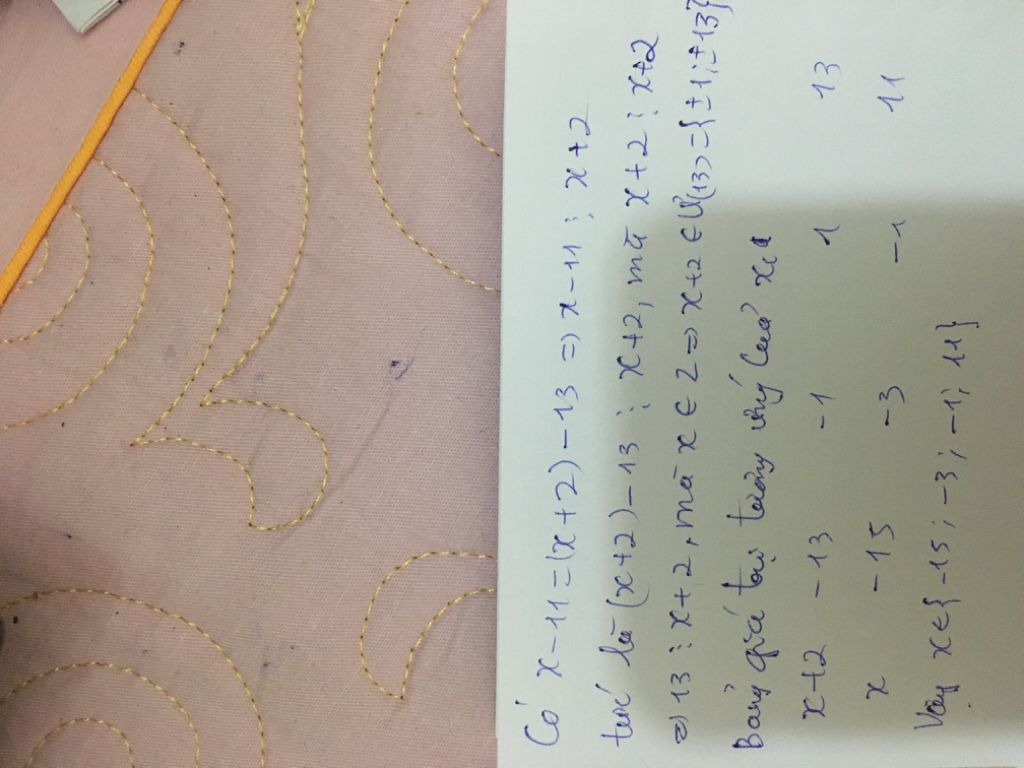 Có x - 11 = (x + 2) - 13 => x - 11 ⋮ x + 2
tức là (x + 2) - 13 ⋮ x + 2, mà x + 2 ⋮ x + 2
=> 13 ⋮ x + 2, mà x ∈ Z => x + 2 ∈ Ư(13) = {±1; ±13}
Bảng giá trị tương ứng của x là
x+2 -13 -1 1 13
x -15 -3 -1 11
Vậy x ∈ {-15; -3; -1; 11}